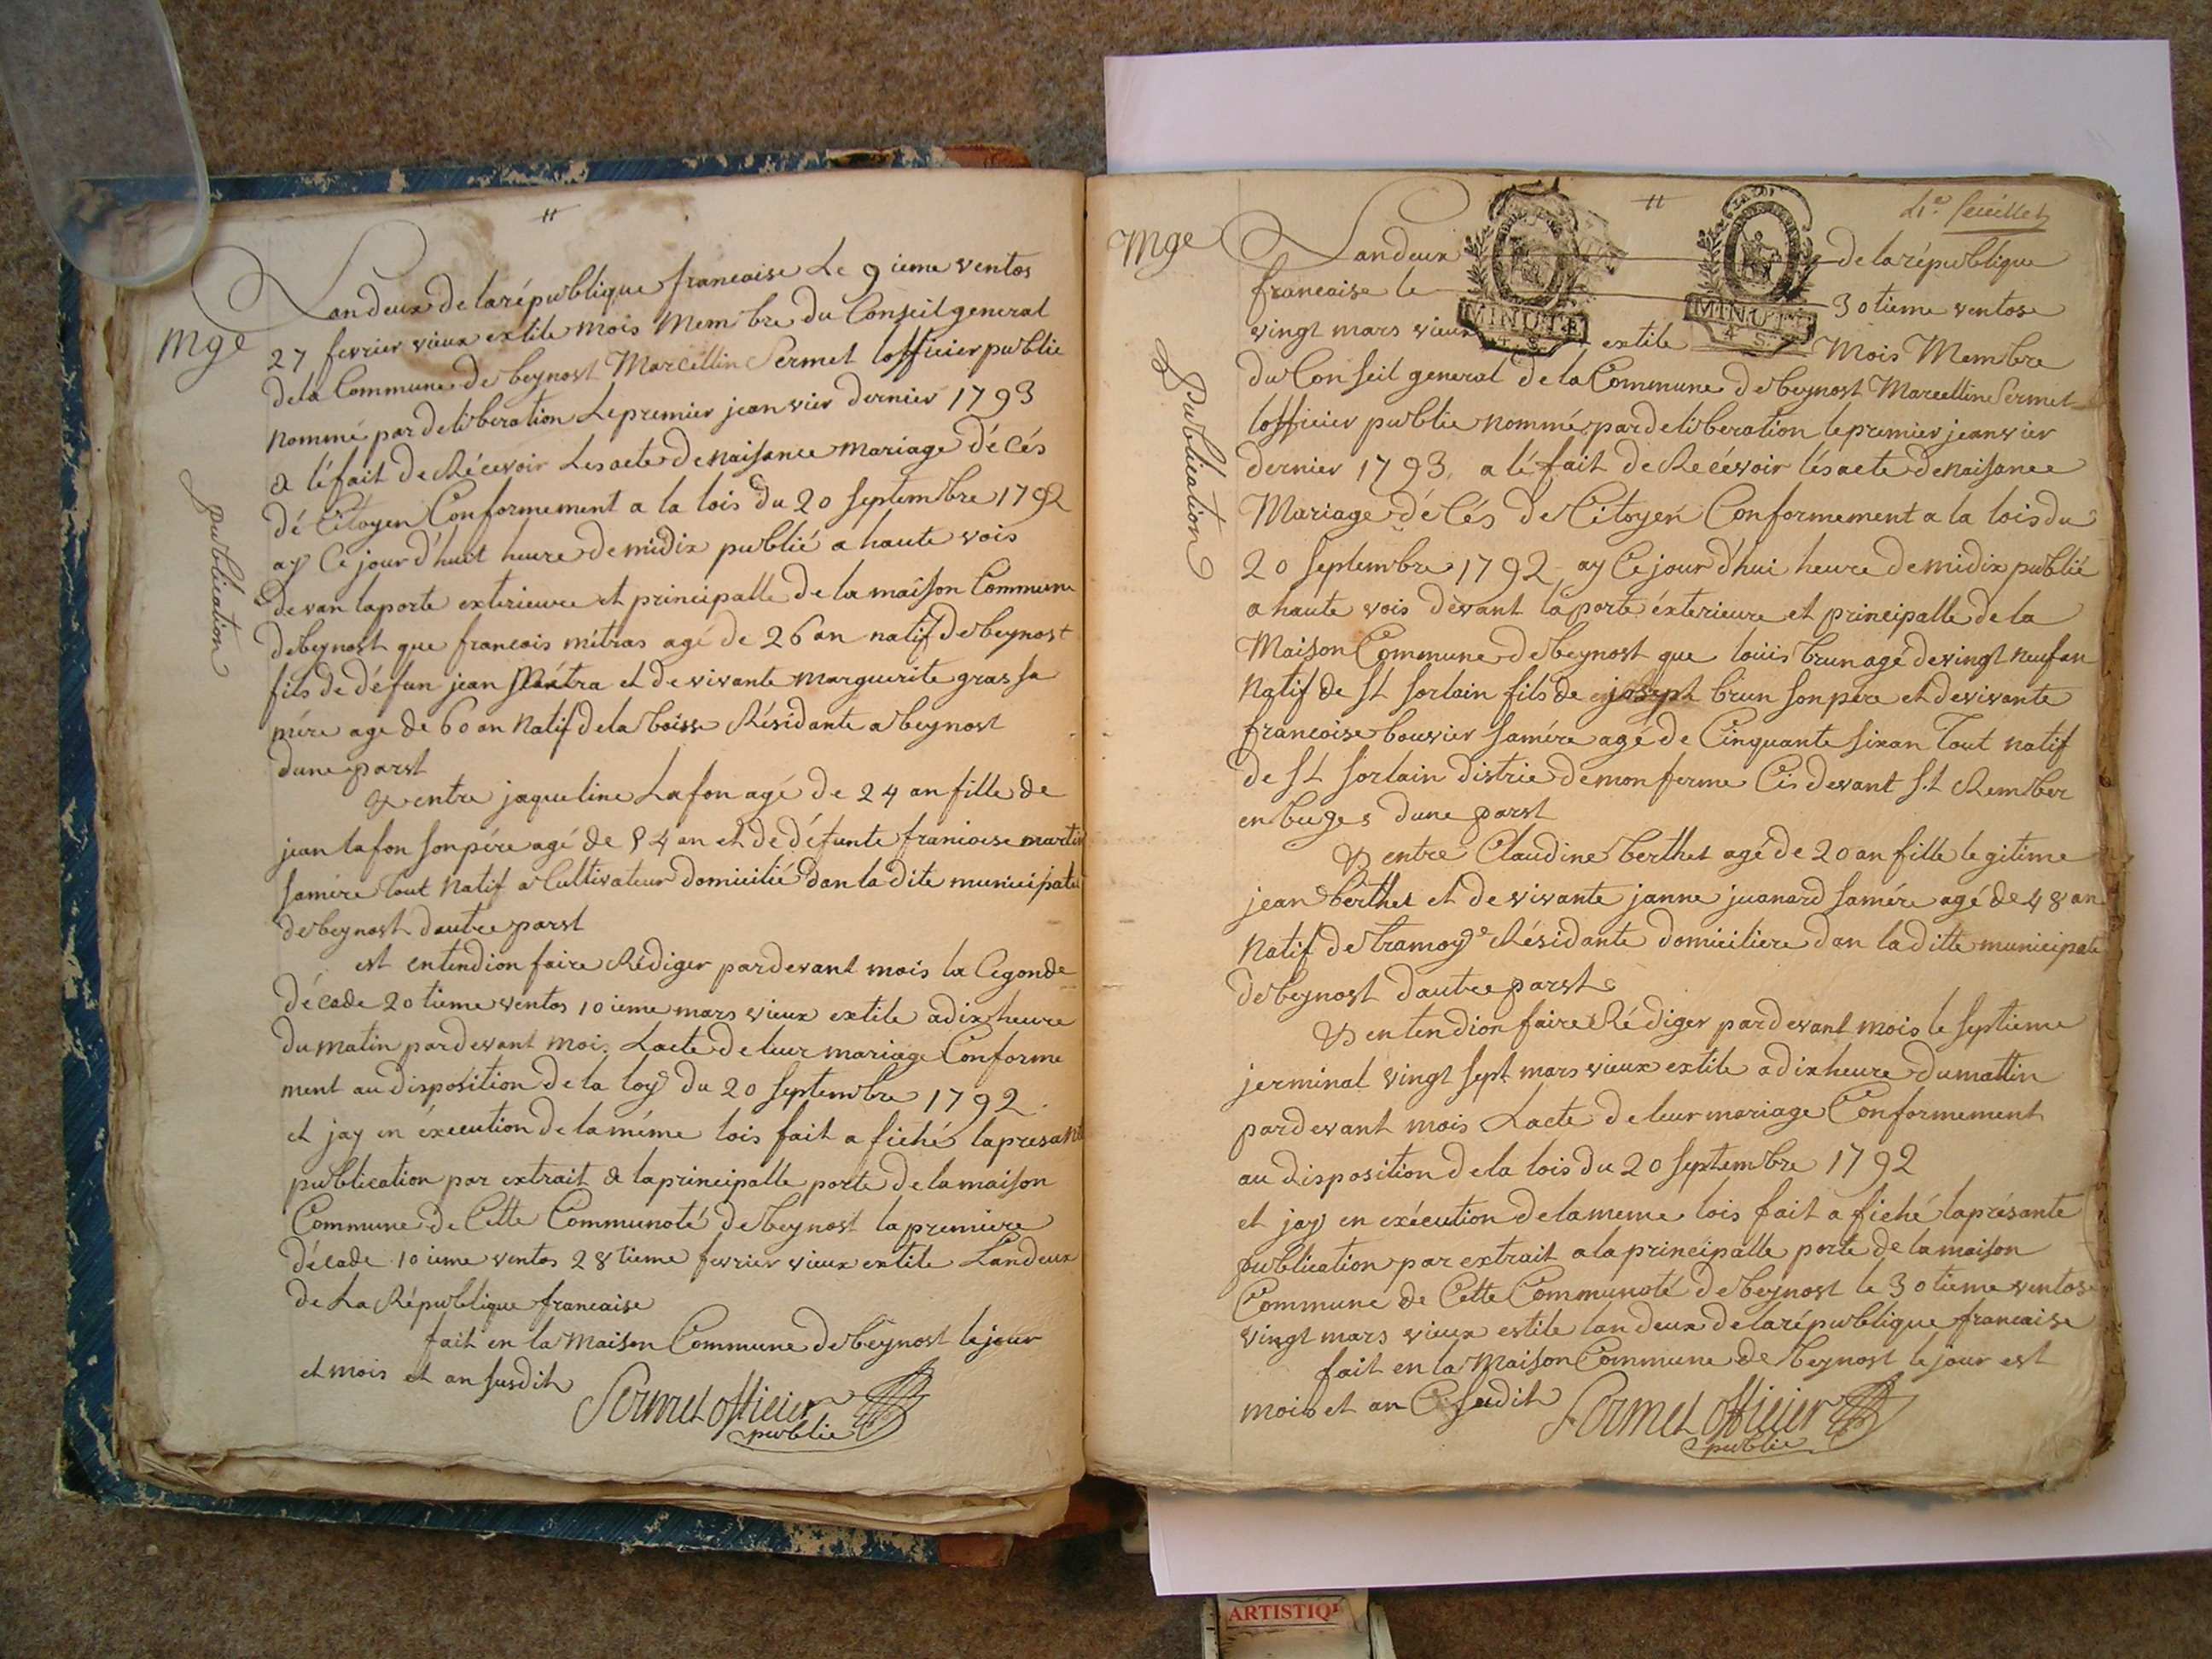 Landeux de larépublique francaise Le 9 ieme ventos
Mge
27 fevrier vieux extile mois Membre du Conseil general
dela Commune de beynost Marcellin Sermet lofficier public
nommé par deliberation Lepremier jeanvier dernier 1793
a léfait de Récevoir Les acte de naisance mariage décés
dé Citoyen Conformement a la lois du 20 septembre 1792
ay Ce jourd'huit heure de midix publié a haute vois
devan laporte exterieure et principalle de la maison Commune
publication
debeynost que francois métras agé de 26 an natif de beynost
fils de défun jean Métra et de vivante marguerite gras sa
mére agé de 60 an natif dela boisse Résidante a beynost
dune parst
& entre jaqueline Lafon agé de 24 an fille de
jean lafon son pére agé de 54 an et de défunte francoise martin
samére tout natif a Cultivateur domicilié dan la dite municipate
debeynost dautre parst
est entendion faire Rédiger pardevant mois la Cegonde
décade 20 tieme ventos 10 ieme mars vieux extile a dix heure
du matin pardevant moi. Lacte de leur mariage Conforme
ment au disposition de la loy du 20 septembre 1792
et jay en éxecution de la méme lois fait a fiché la presante
publication par extrait a laprincipalle porte de la maison
Commune de Cette Communoté de beynost la premiere
décade 10 ieme ventos 28 tieme fevrier vieux extile Landeux
de La République francaise
fait en la Maison Commune de beynost le jour
et mois et an susdit
Sermet officier
public
4e. feuillet
Mge
Landeux de larépublique
MINUTE
4 S.
MINUTE
4 S.
francaise le 30 tieme ventose
vingt mars vieux extile Mois Membre
du Conseil general de la Commune de beynost Marcelline Sermet
lofficier public nommé par deliberation le premier jeanvier
dernier 1793, a léfait de Recévoir lésacte denaisance
Mariage décés de Citoyen Conformement a la lois du
20 septembre 1792 ay Ce jourd'hui heure de midix publié
& publication
a haute vois devant la porte éxterieure et principalle de la
Maison Commune de beynost que louis brun agé de vingt neuf an
Natif de St sorlain fils de joseph brun son pere et devivante
francoise bouvier samére agé de Cinquante sixan Tout natif
de St sorlain distric de mon ferme Cis devant S.t Rember
en buges dune parst
& entre Claudine berthet agé de 20 an fille legitime
jean berthet et de vivante janne juanard samére agé de 48 an
Natif de tramoye Résidante domiciliere dan la ditte municipate
de beynost dautre parst
& entendion faire Rédiger pardevant mois le septieme
jerminal vingt sept mars vieux extile a dix heure dumattin
pardevant mois Lacte de leur mariage Conformement
au disposition de la lois du 20 septembre 1792
et jay en exécution delameme lois fait a fiché laprésante
publication par extrait a la principalle porte de la maison
Commune de Cette Communoté de beynost le 30 tieme ventose
vingt mars vieux estile lan deux de larépublique francaise
fait en la Maison Commune de beynost le jour est
mois et an Ci sudit
Sermet officier
public
ARTISTIQ